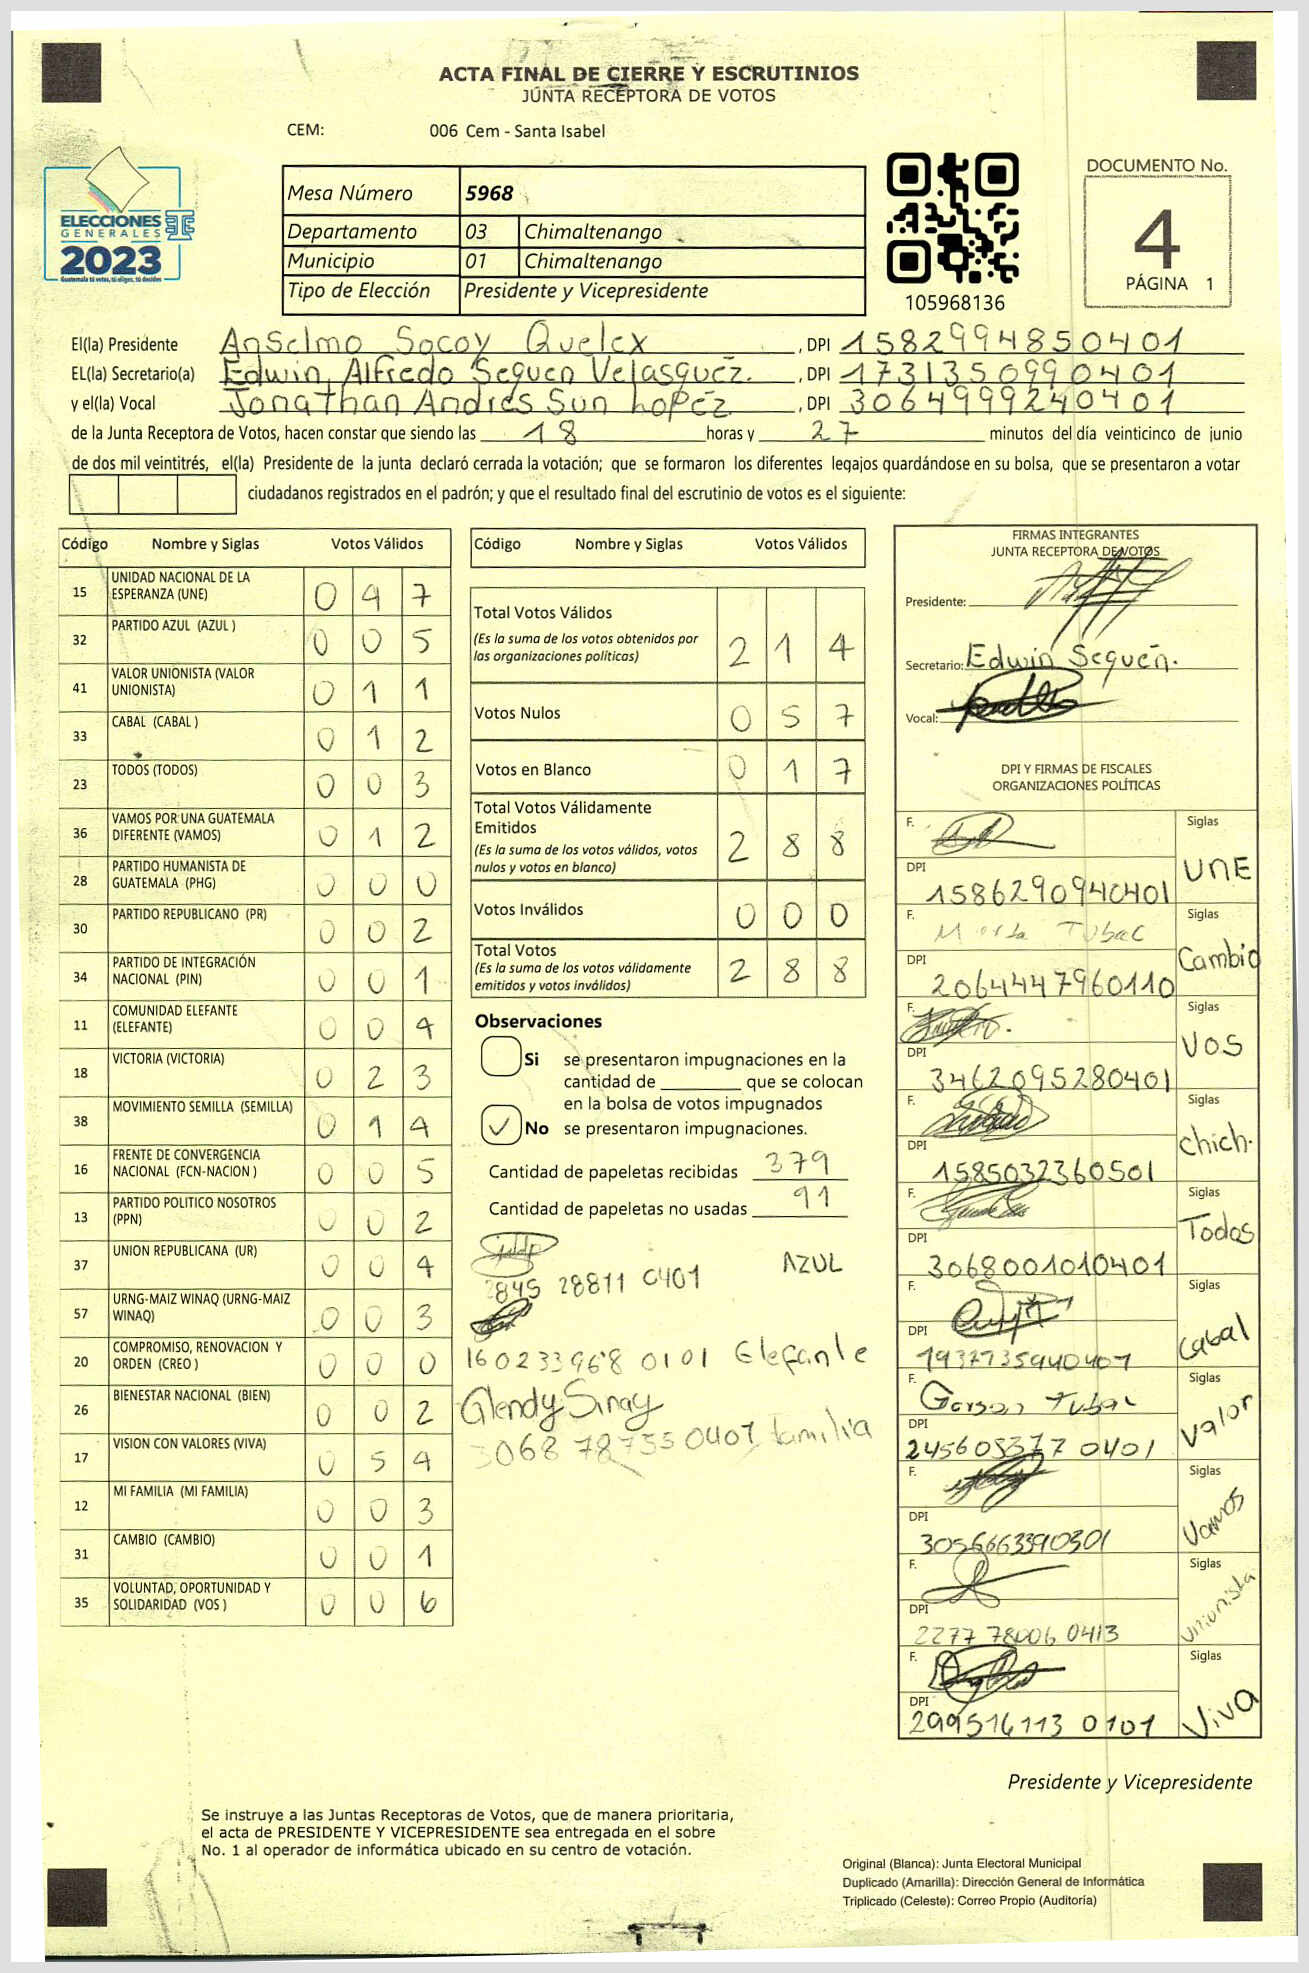 ACTA FINAL DE CIERRE Y ESCRUTINIOS
JUNTA RECEPTORA DE VOTOS
CEM: 006 Cem - Santa Isabel
ELECCIONES
GENERALES
2023
Guatemala tú votas, tú eliges, tú decides
Mesa Número 5968
Departamento 03 Chimaltenango
Municipio 01 Chimaltenango
Tipo de Elección Presidente y Vicepresidente
105968136
DOCUMENTO No.
4
PÁGINA 1
El(la) Presidente Anselmo Socoy Quelex, DPI 1582994850401
EL(la) Secretario(a) Edwin Alfredo Sequen Velasquez., DPI 1731350990401
y el(la) Vocal Jonathan Andres Sun Lopez, DPI 3064999240401
de la Junta Receptora de Votos, hacen constar que siendo las 18 horas y 27 minutos del día veinticinco de junio
de dos mil veintitrés, el(la) Presidente de la junta declaró cerrada la votación; que se formaron los diferentes legajos guardándose en su bolsa, que se presentaron a votar
ciudadanos registrados en el padrón; y que el resultado final del escrutinio de votos es el siguiente:
Código Nombre y Siglas Votos Válidos
15 UNIDAD NACIONAL DE LA ESPERANZA (UNE) 0 4 7
32 PARTIDO AZUL (AZUL ) 0 0 5
41 VALOR UNIONISTA (VALOR UNIONISTA) 0 1 1
33 CABAL (CABAL ) 0 1 2
23 TODOS (TODOS) 0 0 3
36 VAMOS POR UNA GUATEMALA DIFERENTE (VAMOS) 0 1 2
28 PARTIDO HUMANISTA DE GUATEMALA (PHG) 0 0 0
30 PARTIDO REPUBLICANO (PR) 0 0 2
34 PARTIDO DE INTEGRACIÓN NACIONAL (PIN) 0 0 1
11 COMUNIDAD ELEFANTE (ELEFANTE) 0 0 4
18 VICTORIA (VICTORIA) 0 2 3
38 MOVIMIENTO SEMILLA (SEMILLA) 0 1 4
16 FRENTE DE CONVERGENCIA NACIONAL (FCN-NACION ) 0 0 5
13 PARTIDO POLITICO NOSOTROS (PPN) 0 0 2
37 UNION REPUBLICANA (UR) 0 0 4
57 URNG-MAIZ WINAQ (URNG-MAIZ WINAQ) 0 0 3
20 COMPROMISO, RENOVACION Y ORDEN (CREO ) 0 0 0
26 BIENESTAR NACIONAL (BIEN) 0 0 2
17 VISION CON VALORES (VIVA) 0 5 4
12 MI FAMILIA (MI FAMILIA) 0 0 3
31 CAMBIO (CAMBIO) 0 0 1
35 VOLUNTAD, OPORTUNIDAD Y SOLIDARIDAD (VOS ) 0 0 6
Código Nombre y Siglas Votos Válidos
Total Votos Válidos 2 1 4
(Es la suma de los votos obtenidos por
las organizaciones políticas)
Votos Nulos 0 5 7
Votos en Blanco 0 1 7
Total Votos Válidamente
Emitidos 2 8 8
(Es la suma de los votos válidos, votos
nulos y votos en blanco)
Votos Inválidos 0 0 0
Total Votos 2 8 8
(Es la suma de los votos válidamente
emitidos y votos inválidos)
Observaciones
Si se presentaron impugnaciones en la
cantidad de ________ que se colocan
en la bolsa de votos impugnados
✓ No se presentaron impugnaciones.
Cantidad de papeletas recibidas 379
Cantidad de papeletas no usadas 91
AZUL
2845 28811 0401
160233968 0101 Elefante
Glendy Sinay
3068 787550401 familia
FIRMAS INTEGRANTES
JUNTA RECEPTORA DE VOTOS
Presidente:
Secretario: Edwin Sequén.
Vocal:
DPI Y FIRMAS DE FISCALES
ORGANIZACIONES POLÍTICAS
F. Siglas
DPI UNE
1586290940401
F. Tubac Siglas
DPI Cambio
2064447960110
F. Siglas
DPI VOS
3462095280401
F. Siglas
DPI chich.
1585032360501
F. Siglas
DPI Todos
3068001010401
F. Siglas
DPI Cabal
1932735940401
F. Gerson Tubac Siglas
DPI Valor
245605377 0401
F. Siglas
DPI Vamos
3056663390301
F. Siglas
DPI unionista
2277 78006 0413
F. Siglas
DPI Viva
299516113 0101
Presidente y Vicepresidente
Se instruye a las Juntas Receptoras de Votos, que de manera prioritaria,
el acta de PRESIDENTE Y VICEPRESIDENTE sea entregada en el sobre
No. 1 al operador de informática ubicado en su centro de votación.
Original (Blanca): Junta Electoral Municipal
Duplicado (Amarilla): Dirección General de Informática
Triplicado (Celeste): Correo Propio (Auditoría)